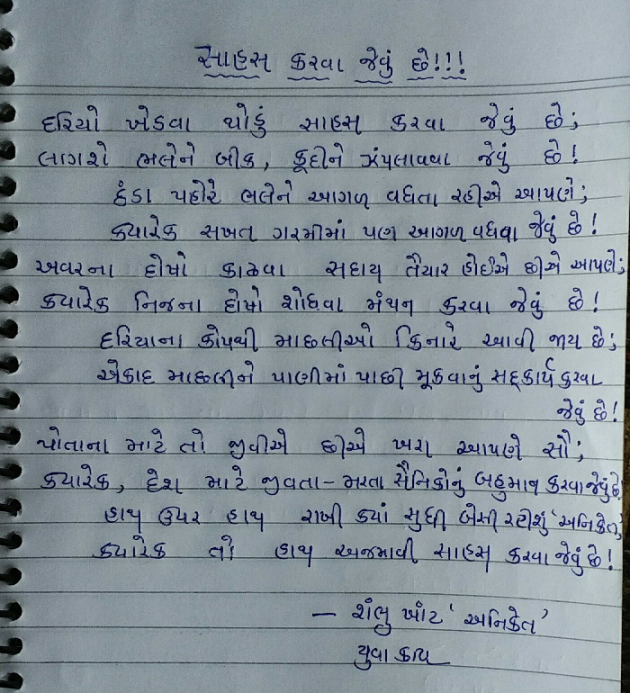 સાહસ કરવા જેવું છે!!!
દરિયો ખેડવા થોડું સાહસ કરવા જેવું છે;
લાગશે ભલેને બીક, કૂદીને ઝંપલાવવા જેવું છે!
ઠંડા પહોરે ભલેને આગળ વધતા રહીએ આપણે;
ક્યારેક સખત ગરમીમાં પણ આગળ વધવા જેવું છે!
અવરના દોષો કાઢવા સદાય તૈયાર હોઈએ છીએ આપણે;
ક્યારેક નિજના દોષો શોધવા મંથન કરવા જેવું છે!
દરિયાના કોપથી માછલીઓ કિનારે આવી જાય છે;
એકાદ માછલીને પાણીમાં પાછી મૂકવાનું સદ્કાર્ય કરવા
જેવું છે!
પોતાના માટે તો જીવીએ છીએ ખરા આપણે સૌ;
ક્યારેક, દેશ માટે જીવતા-મરતા સૈનિકોનું બહુમાન કરવા જેવું છે!
હાથ ઉપર હાથ રાખી ક્યાં સુધી બેસી રહીશું 'અનિકેત';
ક્યારેક તો હાથ અજમાવી સાહસ કરવા જેવું છે!
— શંભુ ખાંટ 'અનિકેત'
યુવા કવિ